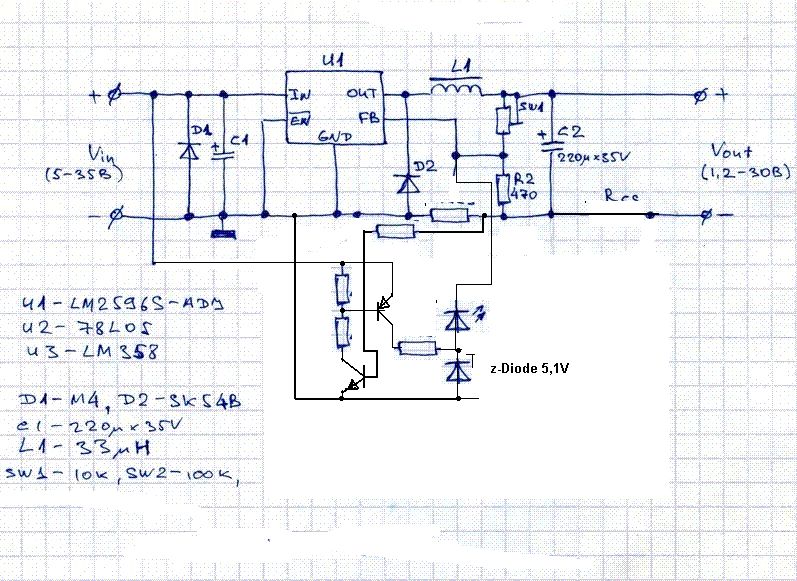 U1
L1
+
IN
OUT
SW1
+
EN
FB
D1
+
C1
GND
+
C2
220µx35V
Vin
(5-35В)
D2
R2
470
Vout
(1,2-30В)
-
-
U1-LM2596S-ADJ
U2-78L05
U3-LM358
z-Diode 5,1V
D1-M4, D2-SK54B
C1-220µx35V
L1-33µH
SW1-10K, SW2-100K,